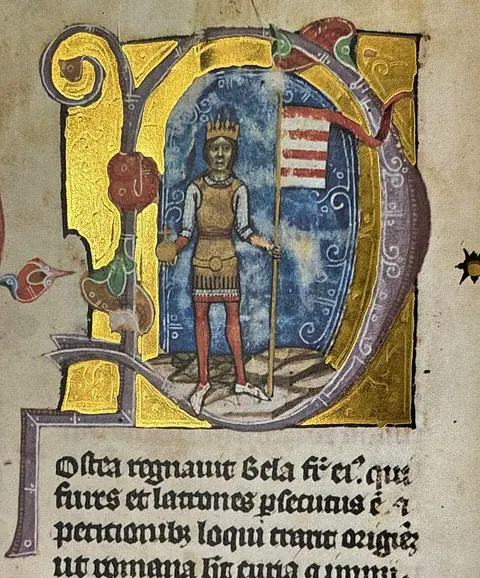 POstea regnauit Bela fr̄ eiꝰ. qui
fures et latrones ꝑsecutus ē. ⁊
peticionibꝫ loqui traxit originē
ut romana hꝫ curia